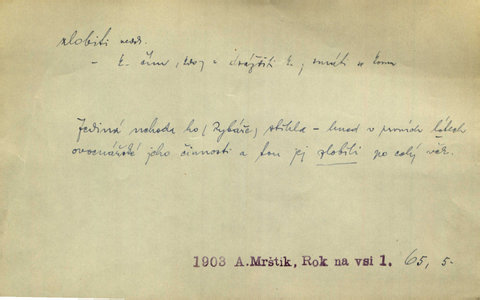 zlobiti ned.
– k. čím, koho = drážditi k.;
Jediná nehoda ho (Rybáře) stihla – hned v prvních létech
ovocnářské jeho činnosti a tou jej zlobili po celý věk.
1903 A.Mrštík, Rok na vsi 1. 65, 5.